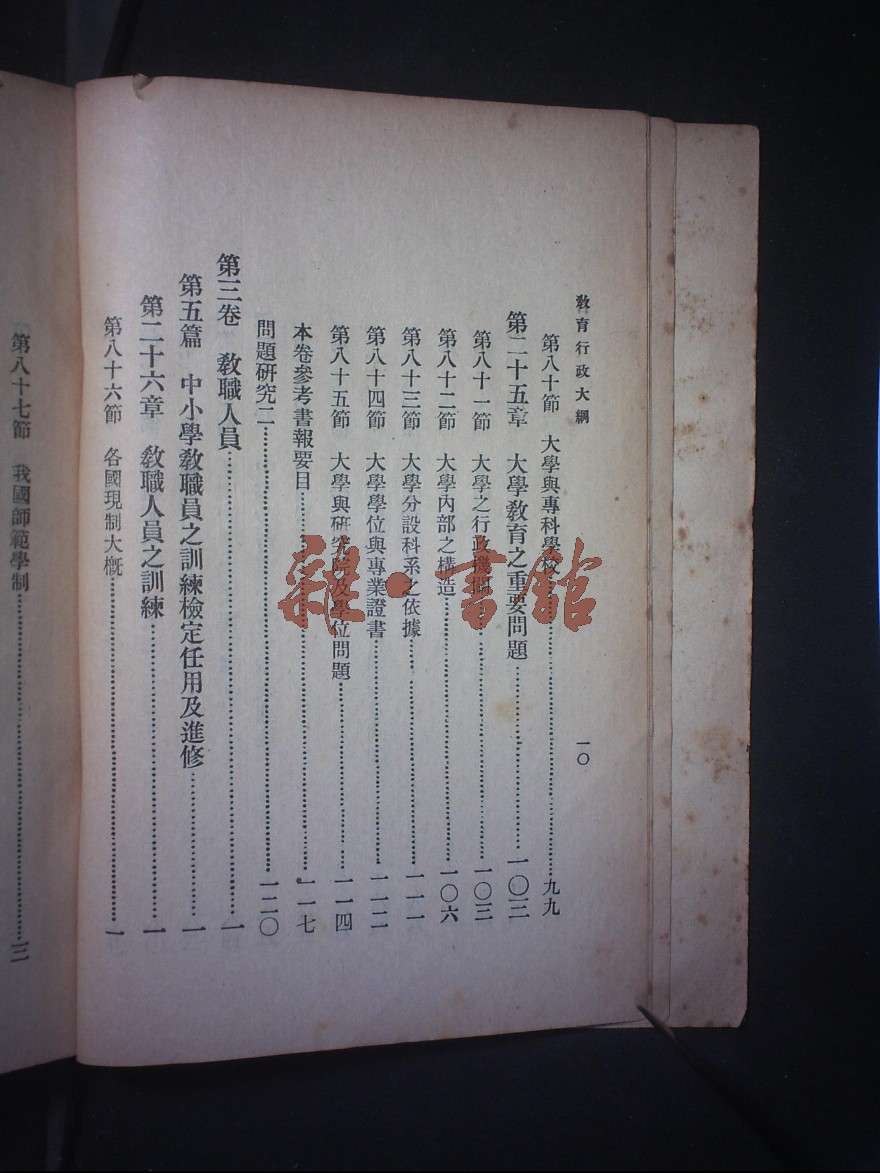 教育行政大綱
一〇
第八十節　大學與專科學校……九九
第二十五章　大學教育之重要問題……一〇三
第八十一節　大學之行政機關……一〇三
第八十二節　大學內部之構造……一〇六
第八十三節　大學分設科系之依據……一一一
第八十四節　大學學位與專業證書……一一二
第八十五節　大學與研究院及學位問題……一一四
本卷參考書報要目……一一七
問題研究二……一二〇
第三卷　教職人員……一
第五篇　中小學教職員之訓練檢定任用及進修……一
第二十六章　教職人員之訓練……一
第八十六節　各國現制大概……一
第八十七節　我國師範學制……三
雜·書館